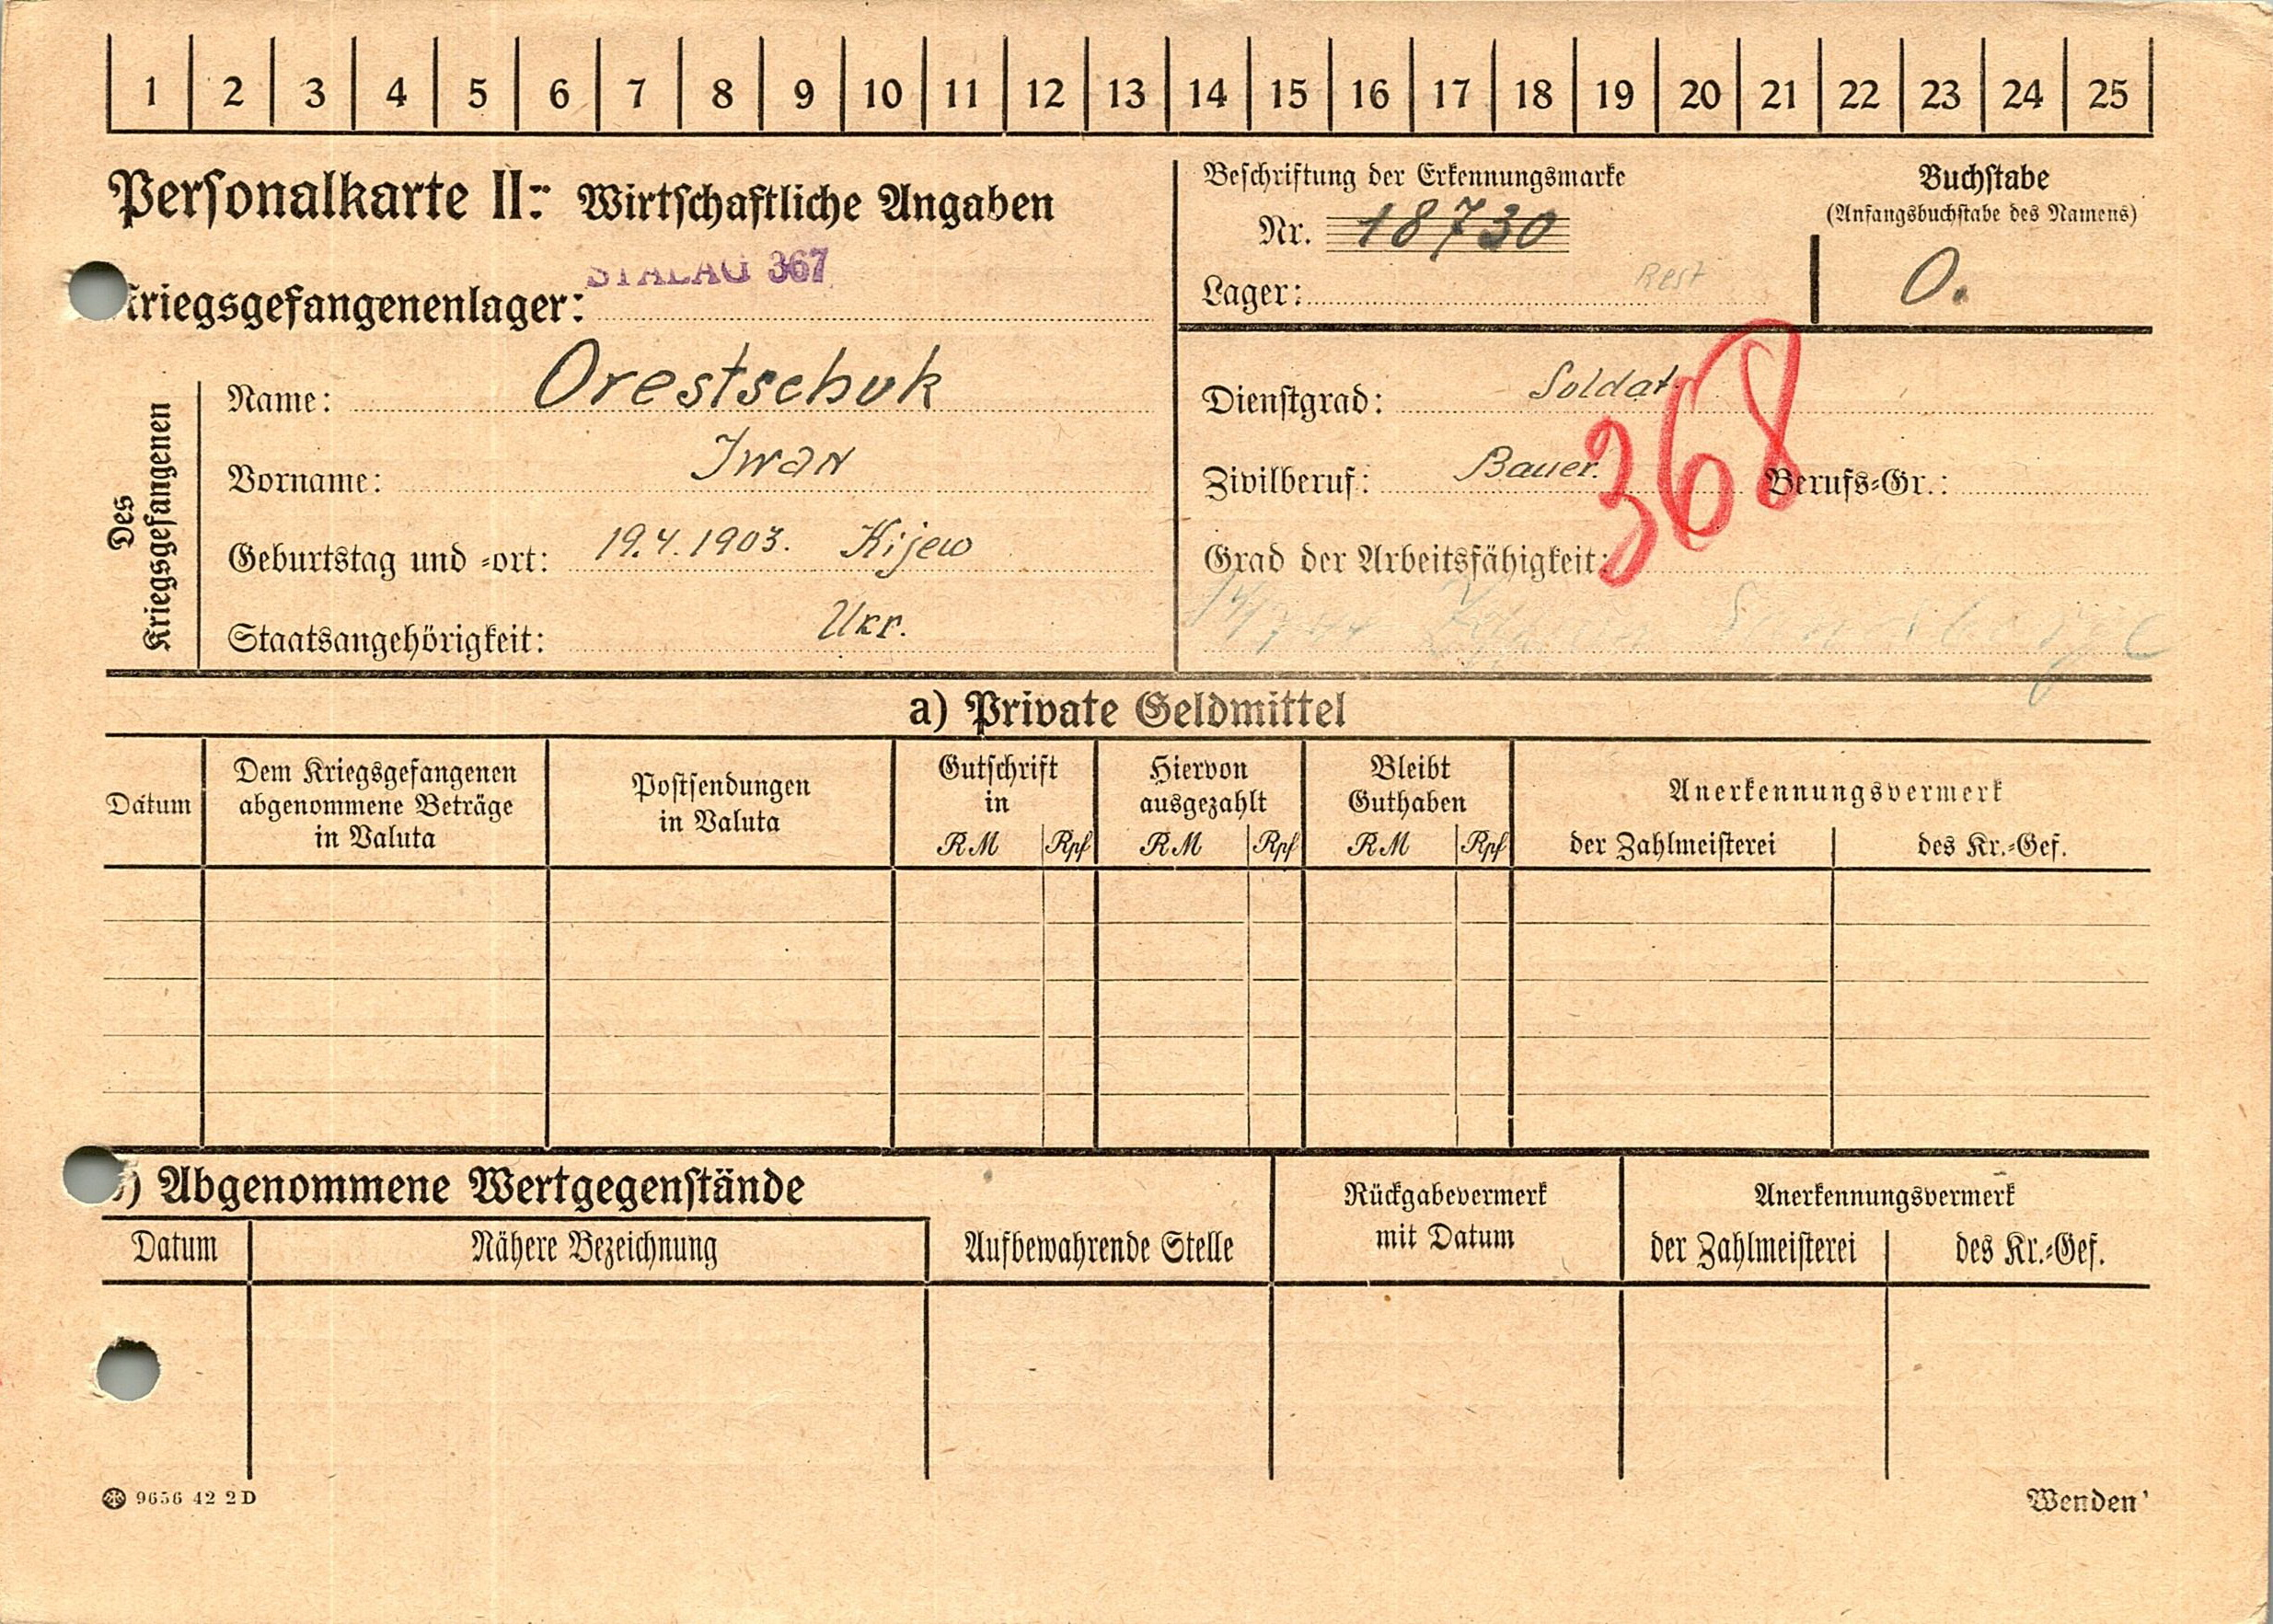 1 2 3 4 5 6 7 8 9 10 11 12 13 14 15 16 17 18 19 20 21 22 23 24 25
Personalkarte II: Wirtschaftliche Angaben
STALAG 367
kriegsgefangenenlager:
Beschriftung der Erkennungsmarke
Nr. 18730
Lager: Rest
Buchstabe
(Anfangsbuchstabe des Namens)
O.
Des Kriegsgefangenen
Name: Orestschuk
Vorname: Iwan
Geburtstag und -ort: 19.4.1903. Kijew
Staatsangehörigkeit: Ukr.
Dienstgrad: Soldat
Zivilberuf: Bauer. Berufs-Gr.:
368
Grad der Arbeitsfähigkeit:
a) Private Geldmittel
Datum
Dem Kriegsgefangenen
abgenommene Beträge
in Valuta
Postsendungen
in Valuta
Gutschrift
in
RM Rpf
Hiervon
ausgezahlt
RM Rpf
Bleibt
Guthaben
RM Rpf
Anerkennungsvermerk
der Zahlmeisterei des Kr.-Gef.
) Abgenommene Wertgegenstände
Datum Nähere Bezeichnung
Aufbewahrende Stelle
Rückgabevermerk
mit Datum
Anerkennungsvermerk
der Zahlmeisterei des Kr.-Gef.
9656 42 2D
Wenden